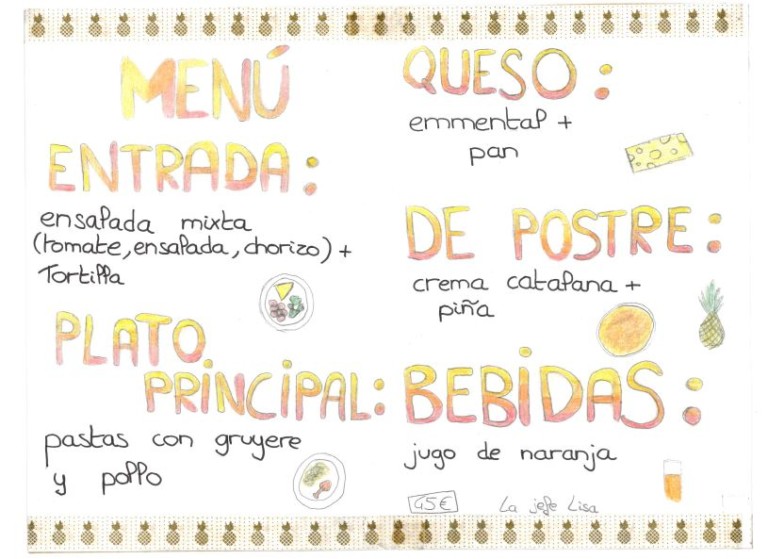 MENÚ
ENTRADA:
ensalada mixta
(tomate, ensalada, chorizo) +
Tortilla
PLATO
PRINCIPAL:
pastas con gruyere
y pollo
QUESO:
emmental +
pan
DE POSTRE:
crema catalana +
piña
BEBIDAS:
jugo de naranja
45€
La jefe Lisa